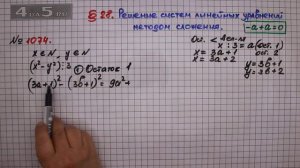 § 28. Решение систем линейных уравнений
методом сложения.
-a+a=0
№ 1074.
x ∈ N, y ∈ N
(x²-y²):3 ① Остаток 1
(3a+1)²-(3b+1)²= 9a²+
Ост.
x : 3 = a(ост. 1)
x = 3a+1 ост. 2
x = 3a+2 y = 3b+1
y = 3b+2